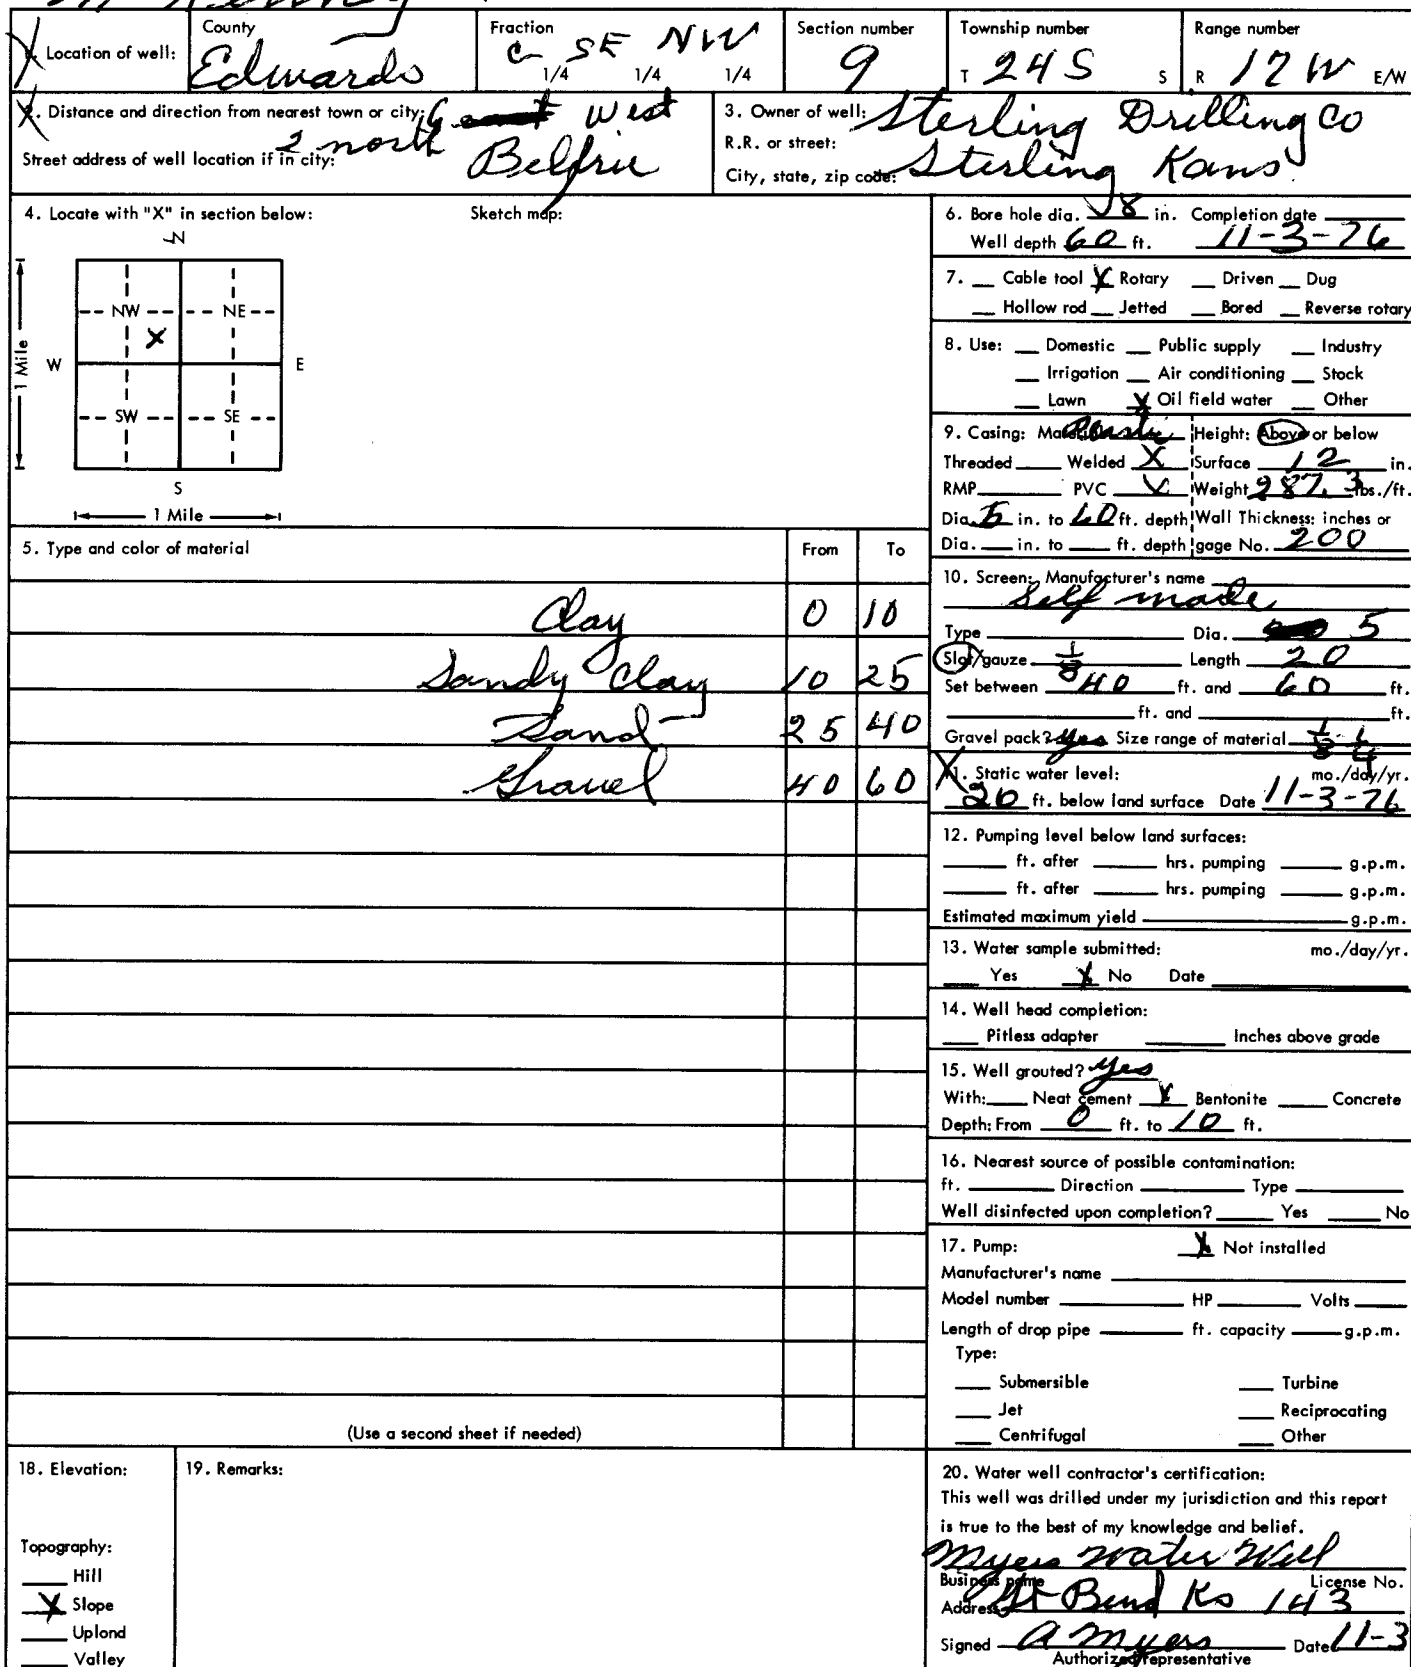 County Fraction Section number Township number Range number
Location of well: Edwards C SE NW 9 T 24S S R 17W E/W
1/4 1/4 1/4
2. Distance and direction from nearest town or city: West
2 north
Street address of well location if in city:
3. Owner of well: Sterling Drilling Co
R.R. or street:
City, state, zip code: Sterling Kans.
4. Locate with "X" in section below: Sketch map:
N
NW NE
X
W E
1 Mile
SW SE
S
1 Mile
5. Type and color of material From To
Clay 0 10
Sandy Clay 10 25
Sand 25 40
Gravel 40 60
(Use a second sheet if needed)
6. Bore hole dia. 8 in. Completion date
Well depth 60 ft. 11-3-76
7. Cable tool X Rotary Driven Dug
Hollow rod Jetted Bored Reverse rotary
8. Use: Domestic Public supply Industry
Irrigation Air conditioning Stock
Lawn X Oil field water Other
9. Casing: Material Plastic Height: Above or below
Threaded Welded X Surface 12 in.
RMP PVC X Weight 287.3 lbs./ft.
Dia. 5 in. to 60 ft. depth Wall Thickness: inches or
Dia. in. to ft. depth gage No. 200
10. Screen: Manufacturer's name
Self made
Type Dia. 5
Slot/gauze 1/8 Length 20
Set between 40 ft. and 60 ft.
ft. and ft.
Gravel pack? Yes Size range of material 1/8 1/4
11. Static water level: mo./day/yr.
20 ft. below land surface Date 11-3-76
12. Pumping level below land surfaces:
ft. after hrs. pumping g.p.m.
ft. after hrs. pumping g.p.m.
Estimated maximum yield g.p.m.
13. Water sample submitted: mo./day/yr.
Yes X No Date
14. Well head completion:
Pitless adapter Inches above grade
15. Well grouted? Yes
With: Neat cement X Bentonite Concrete
Depth: From 0 ft. to 10 ft.
16. Nearest source of possible contamination:
ft. Direction Type
Well disinfected upon completion? Yes No
17. Pump: X Not installed
Manufacturer's name
Model number HP Volts
Length of drop pipe ft. capacity g.p.m.
Type:
Submersible Turbine
Jet Reciprocating
Centrifugal Other
18. Elevation:
Topography:
Hill
X Slope
Uplond
Valley
19. Remarks:
20. Water well contractor's certification:
This well was drilled under my jurisdiction and this report
is true to the best of my knowledge and belief.
Myers Water Well
Business name License No.
Address Gt Bend Ks 143
Signed A Myers Date 11-3
Authorized representative